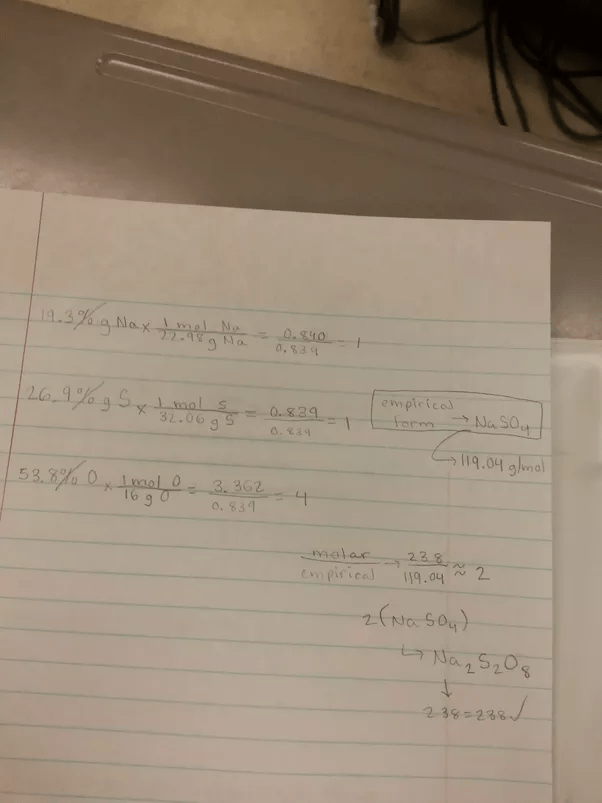 19.3% g Na x 1 mol Na / 22.98 g Na = 0.840 / 0.839 = 1
26.9% g S x 1 mol S / 32.06 g S = 0.839 / 0.839 = 1
empirical
form → NaSO₄
↳ 119.04 g/mol
53.8% O x 1 mol O / 16 g O = 3.362 / 0.839 = 4
molar / empirical → 238 / 119.04 ≈ 2
2(NaSO₄)
↳ Na₂S₂O₈
↓
238 = 238 ✓